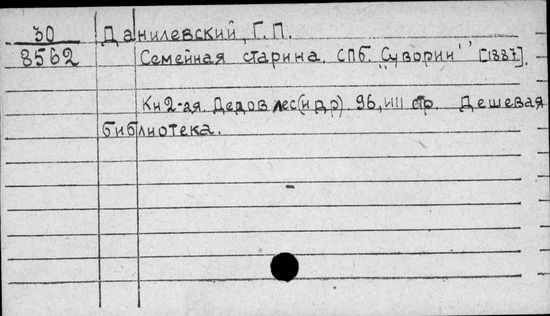 30 Данилевский, Г. П.
8562 Семейная старина. СПб. "Суворин" [1887].
Кн 2-ая. Дедов лес (и др) 96, III стр. Дешевая
библиотека.